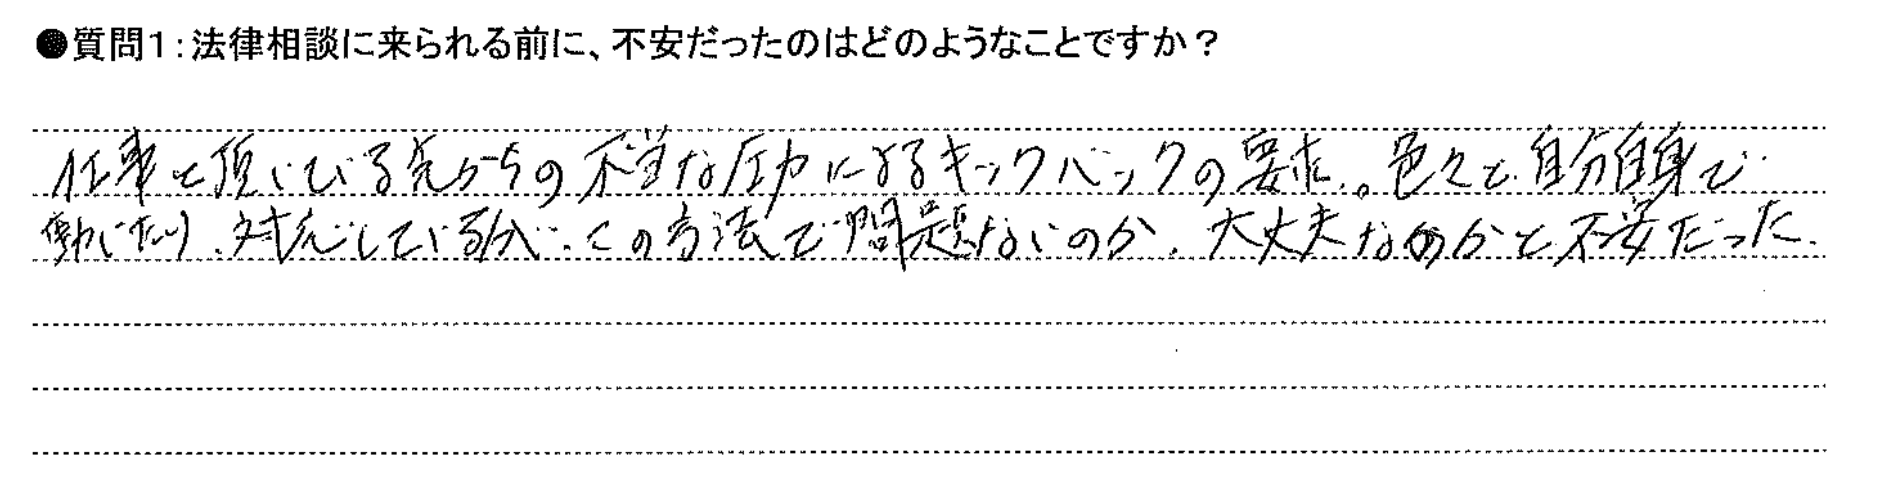 ●質問1:法律相談に来られる前に、不安だったのはどのようなことですか?
仕事を頂いている先からの不当な圧力によるキックバックの要求。色々と自分自身で
動いたり、対応している分、この方法で問題ないのか、大丈夫なのかと不安だった。